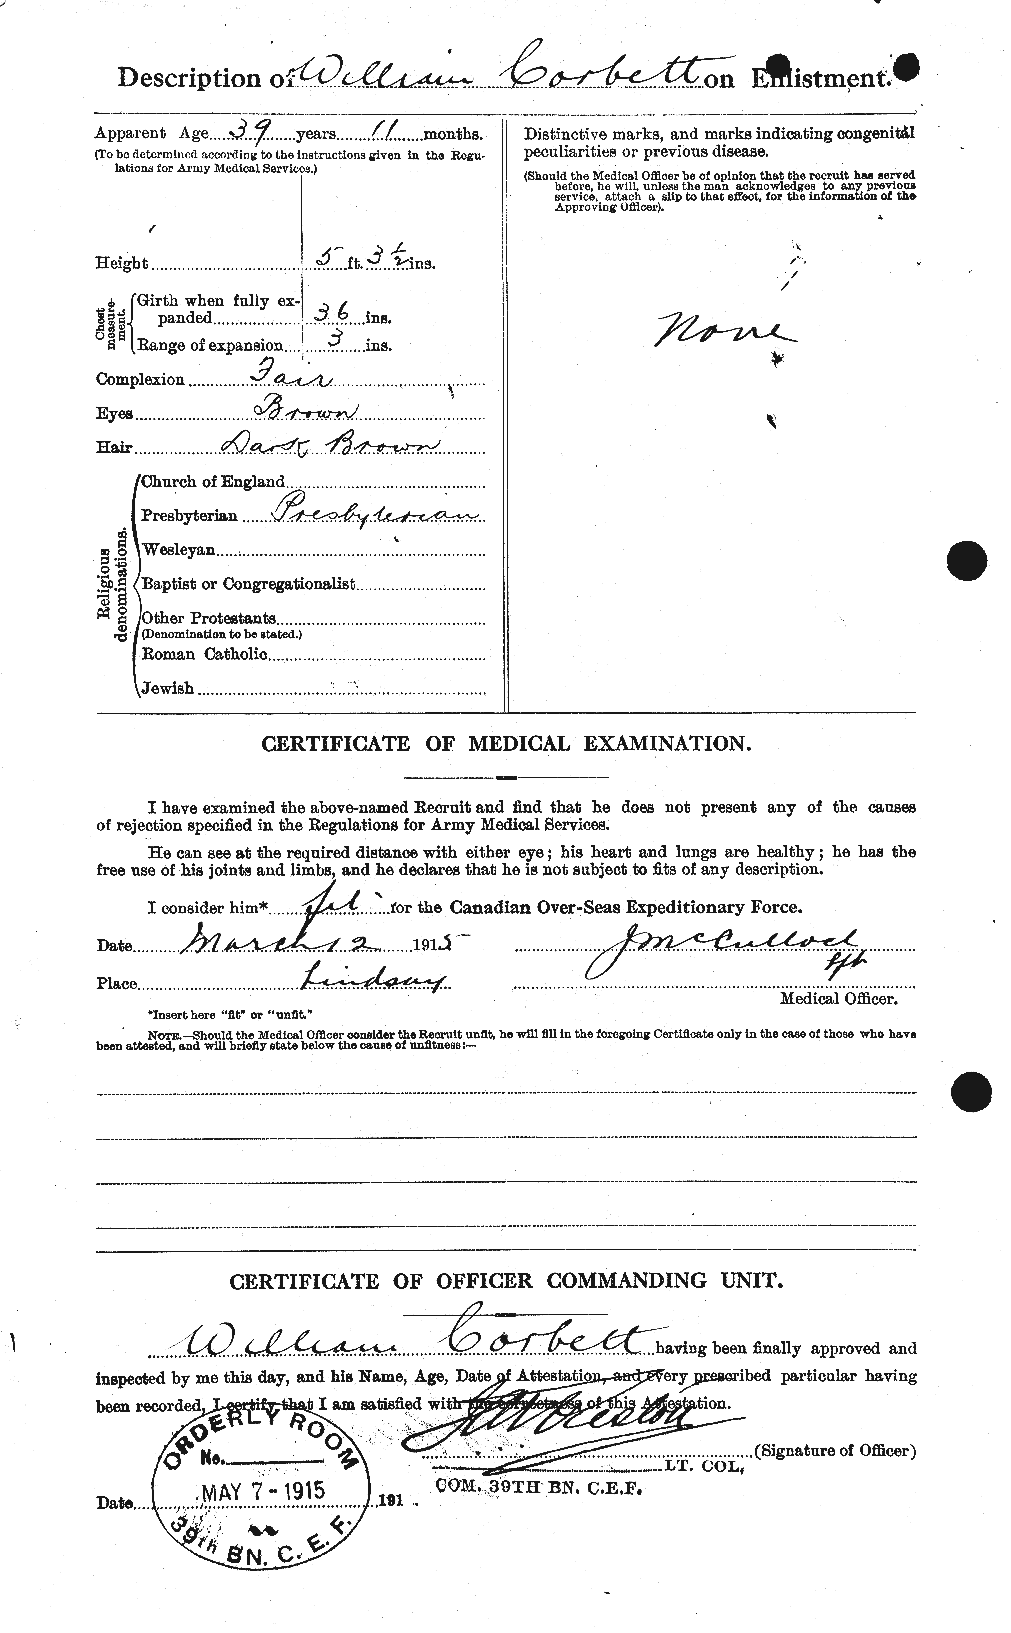 Description of William Corbett on Enlistment.
Apparent Age 39 years 11 months.
(To be determined according to the instructions given in the Regu-
lations for Army Medical Services.)
Height 5 ft. 3 ½ ins.
Chest measurement.
Girth when fully ex-
panded 36 ins.
Range of expansion 3 ins.
Complexion Fair
Eyes Brown
Hair Dark Brown
Religious denominations.
Church of England
Presbyterian Presbyterian
Wesleyan
Baptist or Congregationalist
Other Protestants
(Denomination to be stated.)
Roman Catholic
Jewish
Distinctive marks, and marks indicating congenital
peculiarities or previous disease.
(Should the Medical Officer be of opinion that the recruit has served
before, he will, unless the man acknowledges to any previous
service, attach a slip to that effect, for the information of the
Approving Officer).
None
CERTIFICATE OF MEDICAL EXAMINATION.
I have examined the above-named Recruit and find that he does not present any of the causes
of rejection specified in the Regulations for Army Medical Services.
He can see at the required distance with either eye; his heart and lungs are healthy; he has the
free use of his joints and limbs, and he declares that he is not subject to fits of any description.
I consider him* fit for the Canadian Over-Seas Expeditionary Force.
Date March 12 1915 J McCulloch
Place Lindsay
Medical Officer.
*Insert here "fit" or "unfit."
NOTE.—Should the Medical Officer consider the Recruit unfit, he will fill in the foregoing Certificate only in the case of those who have
been attested, and will briefly state below the cause of unfitness:—
CERTIFICATE OF OFFICER COMMANDING UNIT.
William Corbett having been finally approved and
inspected by me this day, and his Name, Age, Date of Attestation, and every prescribed particular having
been recorded, I certify that I am satisfied with the correctness of this Attestation.
Preston (Signature of Officer)
LT. COL,
COM. 39TH BN. C.E.F.
Date 191 .
ORDERLY ROOM
No.
MAY 7-1915
39th BN. C. E. F.